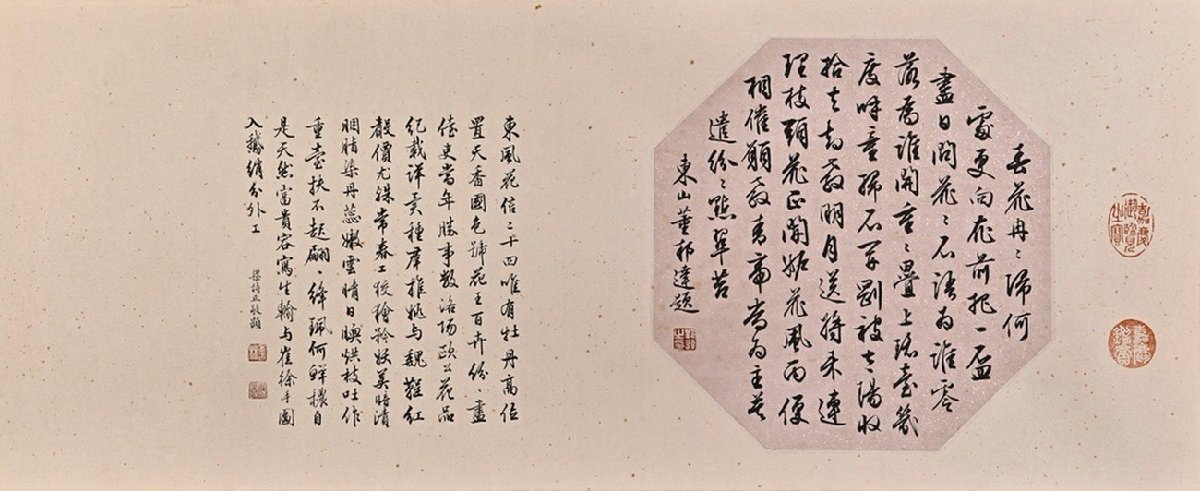 嘉慶御覽之寶
春花冉々歸何
處更向花前把一盃
盡日問花々不語為誰零
落為誰開重々疊上瑤臺幾
度呼童掃不開剛被太陽收
拾去却教明月送將來連
理枝頭花正開妬花風雨便
相催願教青帝常為主莫
遣紛々點翠苔
東山董邦達題
東風花信二十四唯有牡丹高位
置天香國色號花王百卉紛々盡
侍史當年勝事數洛陽歐公花品
紀載詳黃種群推姚与魏鞓紅
聲價尤殊常春工狡獪矜妖異暗漬
胭脂染丹蕊嫩雲晴日暖烘枝吐作
重臺扶不起翩々絳珮何鮮穠自
是天然富貴容寫生輸与崔徐手圖
入鵝綃分外工
梁詩正敬題